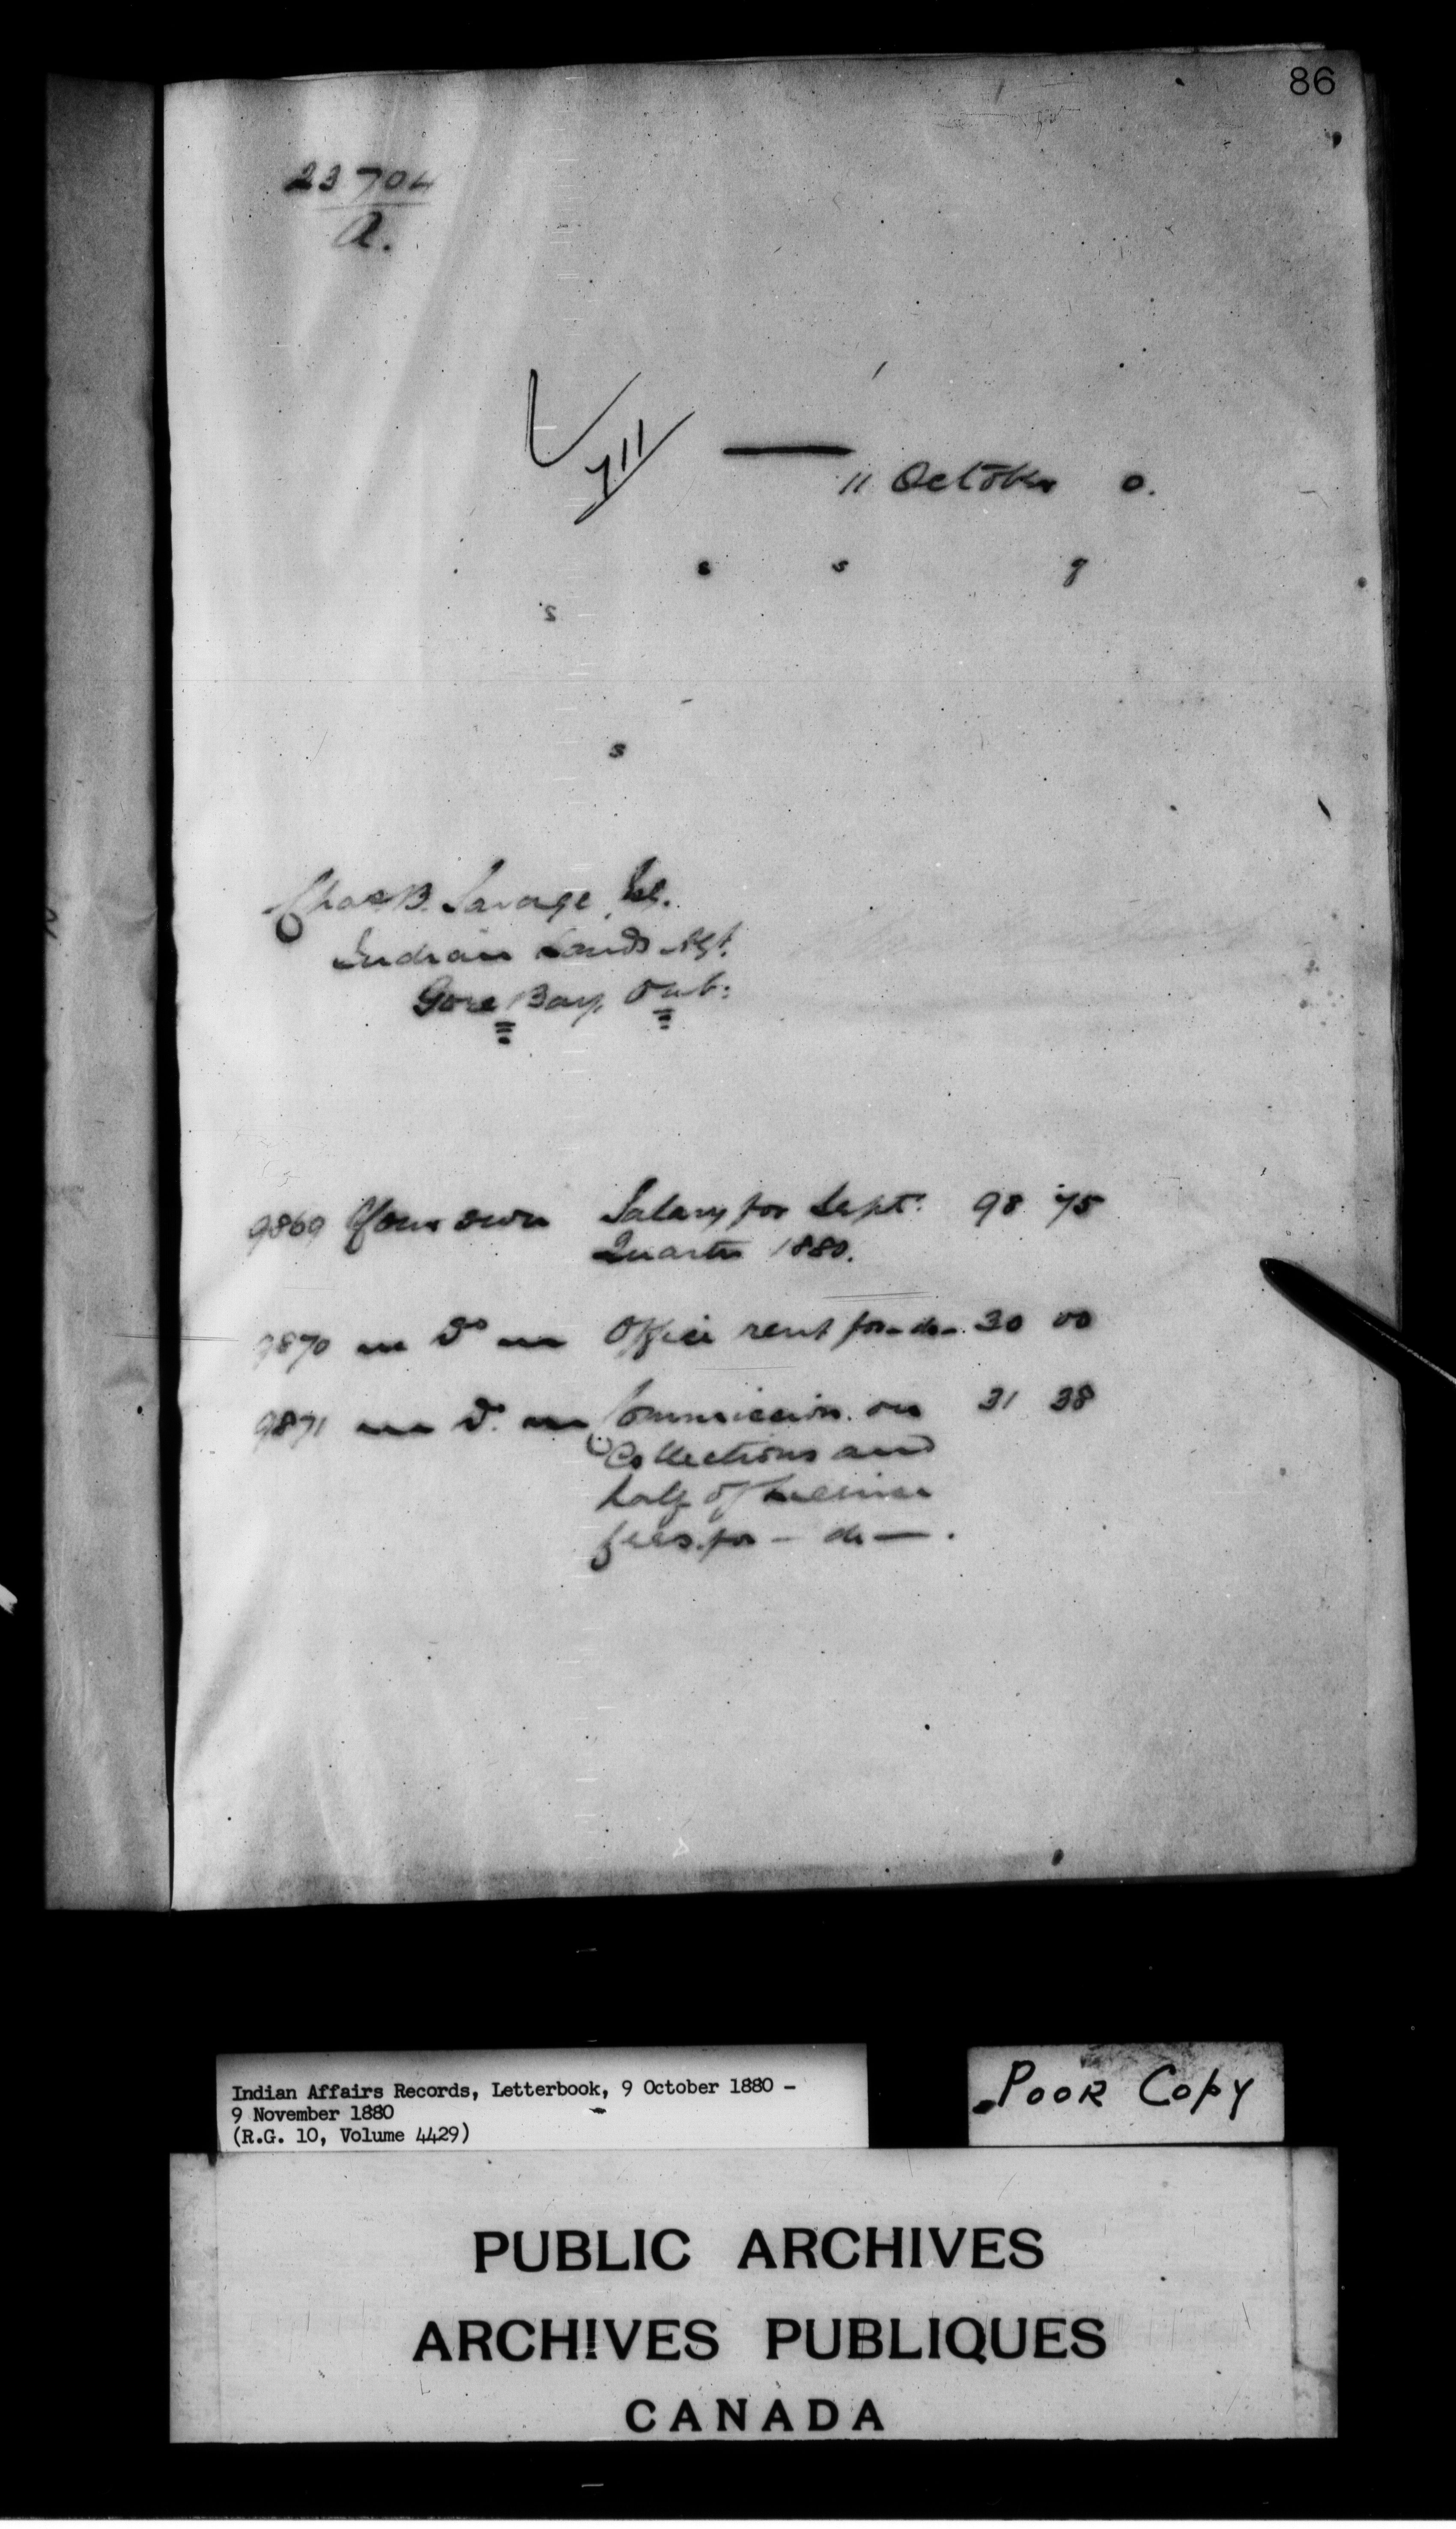 86
23704
A.
711
11 October 0.
s s g
s
s
Chas B. Savage, Esq.
Indian Lands Agt.
Gore Bay, Ont:
9869 Your own Salary for Sept. 98 75
Quarter 1880.
9870 " Do " Office rent for - do - 30 00
9871 " Do " Commission on 31 38
Collections and
half of
fees for - do - .
Indian Affairs Records, Letterbook, 9 October 1880 -
9 November 1880
(R.G. 10, Volume 4429)
POOR COPY
PUBLIC ARCHIVES
ARCHIVES PUBLIQUES
CANADA